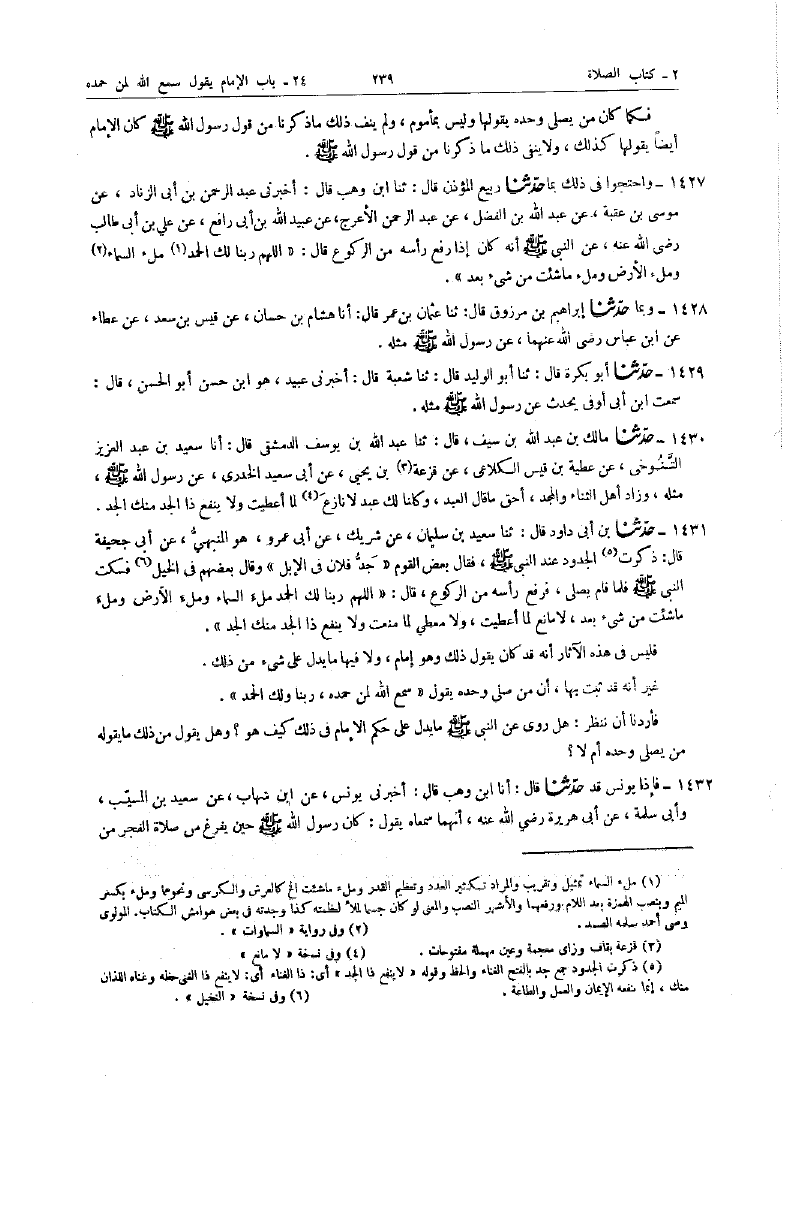 ٢ - كتاب الصلاة ٢٣٩ ٢٤ - باب الإمام يقول سمع الله لمن حمده
فكما كان من يصلى وحده يقولها وليس بمأموم ، ولم ينف ذلك ماذكرنا من قول رسول الله ﷺ كان الإمام
أيضاً يقولها كذلك ، ولاينفى ذلك ما ذكرنا من قول رسول الله ﷺ .
١٤٢٧ - واحتجوا فى ذلك بما حدّثنا ربيع المؤذن قال : ثنا ابن وهب قال : أخبرنى عبد الرحمن بن أبى الزناد ، عن
موسى بن عقبة ، عن عبد الله بن الفضل ، عن عبد الرحمن الأعرج، عن عبيد الله بن أبى رافع ، عن علي بن أبى طالب
رضى الله عنه ، عن النبي ﷺ أنه كان إذا رفع رأسه من الركوع قال : « اللهم ربنا لك الحمد(١) ملء السماء(٢)
وملء الأرض وملء ماشئت من شىء بعد » .
١٤٢٨ - وبما حدّثنا إبراهيم بن مرزوق قال: ثنا عثمان بن عمر قال: أنا هشام بن حسان ، عن قيس بن سعد ، عن عطاء
عن ابن عباس رضى الله عنهما ، عن رسول الله ﷺ مثله .
١٤٢٩ - حدّثنا أبو بكرة قال : ثنا أبو الوليد قال : ثنا شعبة قال : أخبرنى عبيد ، هو ابن حسن أبو الحسن ، قال :
سمعت ابن أبى أوفى يحدث عن رسول الله ﷺ مثله .
١٤٣٠ - حدّثنا مالك بن عبد الله بن سيف ، قال : ثنا عبد الله بن يوسف الدمشقى قال : أنا سعيد بن عبد العزيز
التَّنُوخى ، عن عطية بن قيس الكلاعى ، عن قزعة(٣) بن يحيى ، عن أبى سعيد الخدرى ، عن رسول الله ﷺ ،
مثله ، وزاد أهل الثناء والمجد ، أحق ماقال العبد ، وكلنا لك عبد لانازع(٤) لما أعطيت ولا ينفع ذا الجد منك الجد .
١٤٣١ - حدّثنا بن أبى داود قال : ثنا سعيد بن سليمان ، عن شريك ، عن أبى عمرو ، هو المنبهيُّ ، عن أبى جحيفة
قال: ذكرت(٥) الجدود عند النبى ﷺ ، فقال بعض القوم « جَدُّ فلان فى الإبل » وقال بعضهم فى الخيل(٦) فسكت
النبي ﷺ فلما قام يصلى ، فرفع رأسه من الركوع ، قال : « اللهم ربنا لك الحمد ملءَ السماء وملءَ الأرض وملءَ
ماشئت من شىء بعد ، لامانع لما أعطيت ، ولا معطي لما منعت ولا ينفع ذا الجد منك الجد » .
فليس فى هذه الآثار أنه قد كان يقول ذلك وهو إمام ، ولا فيها مايدل على شىء من ذلك .
غير أنه قد ثبت بها ، أن من صلى وحده يقول « سمع الله لمن حمده ، ربنا ولك الحمد » .
فأردنا أن ننظر : هل روى عن النبى ﷺ مايدل على حكم الإمام فى ذلك كيف هو ؟ وهل يقول من ذلك مايقوله
من يصلى وحده أم لا ؟
١٤٣٢ - فإذا يونس قد حدّثنا قال : أنا ابن وهب قال : أخبرنى يونس ، عن ابن شهاب ، عن سعيد بن المسيّب ،
وأبى سلمة ، عن أبى هريرة رضي الله عنه ، أنهما سمعاه يقول : كان رسول الله ﷺ حين يفرغ من صلاة الفجر من
(١) ملء السماء تمثيل وتقريب والمراد تكثير العدد وتعظيم القدر وملء ماشئت الخ كالعرش والكرسى ونحوهما وملء بكسر
الميم وبنصب الهمزة بعد اللام ورفعها والأشهر النصب والمعنى لو كان جسما لملأ لعظمته كذا وجدته فى بعض هوامش الكتاب. المولوى
وصى أحمد سلمه الصمد . (٢) وفى رواية « السماوات » .
(٣) قزعة بقاف وزاى معجمة وعين مهملة مفتوحات . (٤) وفى نسخة « لا مانع »
(٥) ذكرت الجدود جمع جد بالفتح الغناء والحظ وقوله « لاينفع ذا الجد » أى: ذا الغناء أى: لاينفع ذا الغنى حظه وغناه اللذان
منك ، إنما ينفعه الإيمان والعمل والطاعة . (٦) وفى نسخة « النخيل » .